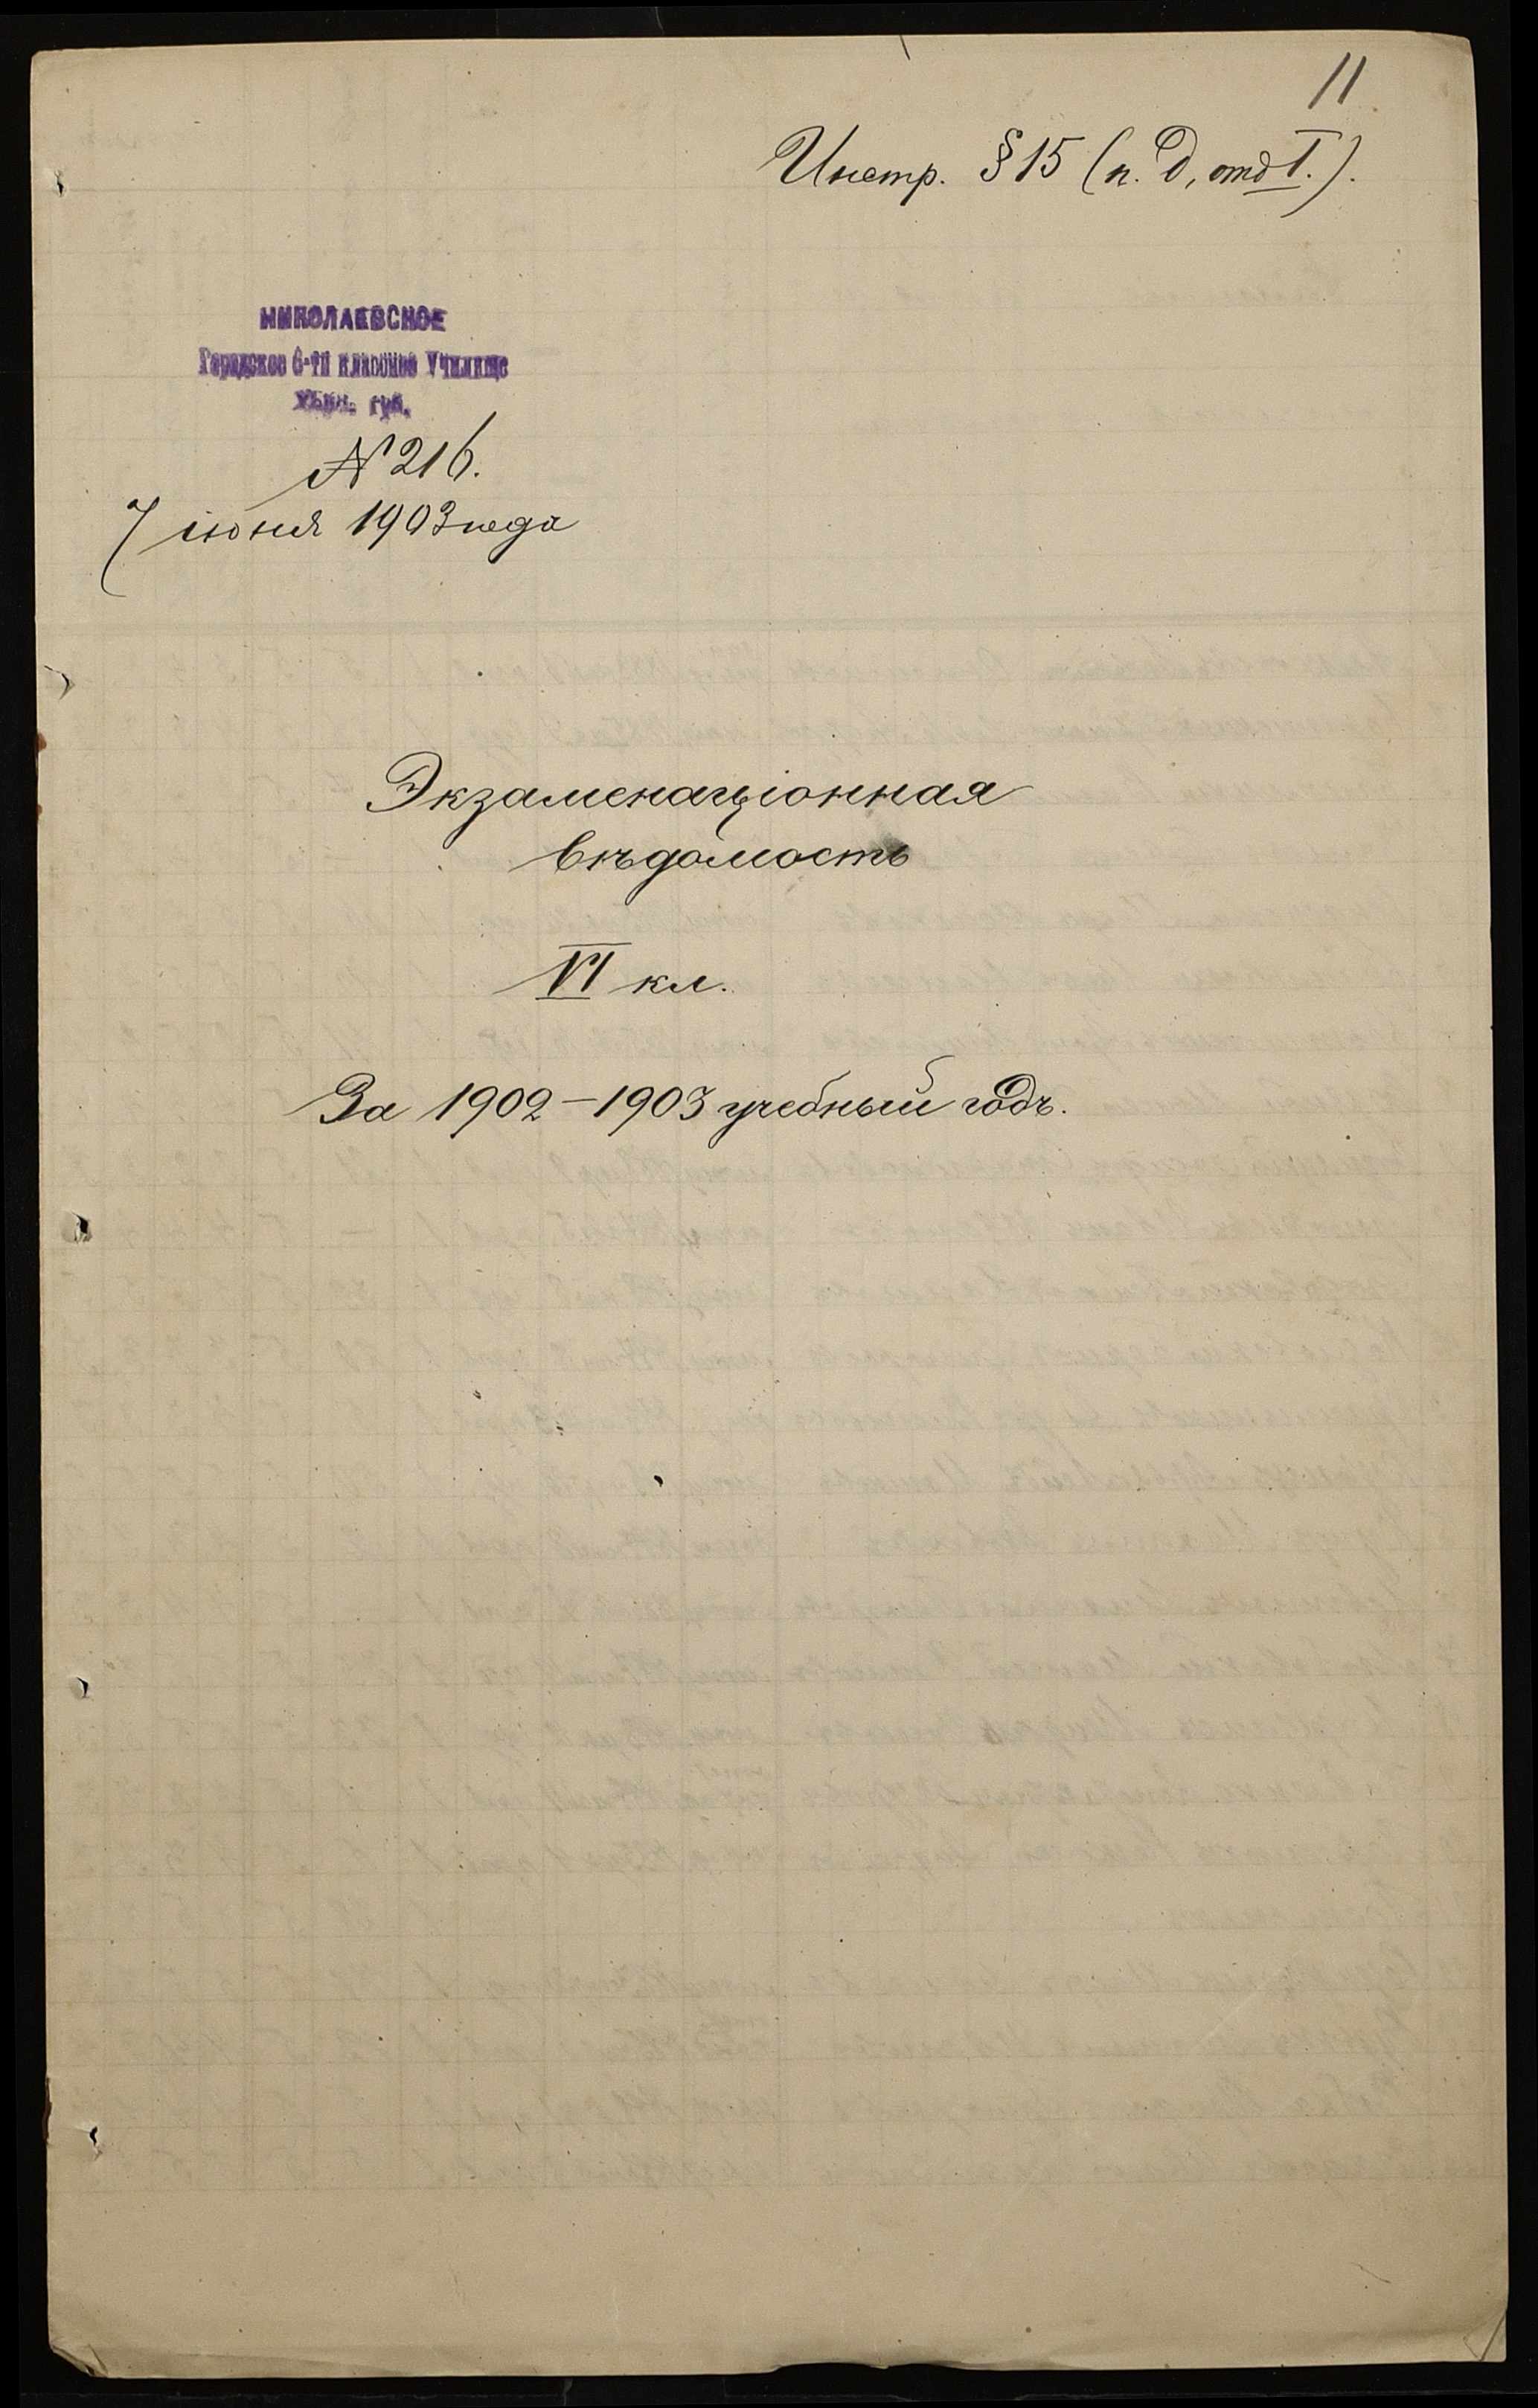 11
Инстр. § 15 (п. Д, отд I.).
НИКОЛАЕВСКОЕ
Городское 6-ти классное Училище
Хѣрс. губ.
№ 216.
7 іюня 1903 года
Экзаменаціонная
вѣдомость
VI кл.
За 1902–1903 учебный годъ.